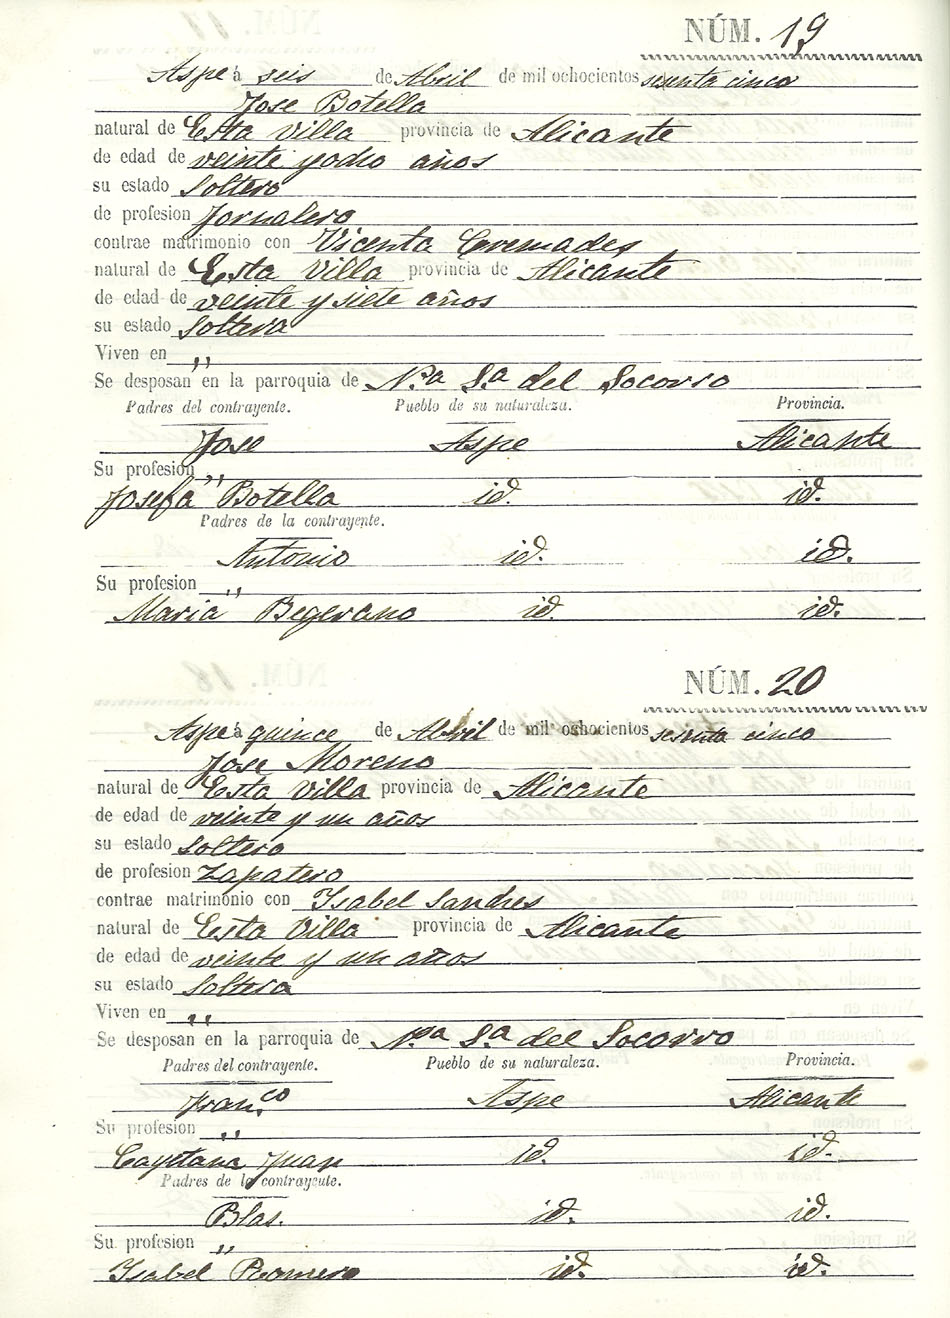 NÚM. 19
Aspe á seis de Abril de mil ochocientos sesenta cinco
Jose Botella
natural de Esta Villa provincia de Alicante
de edad de veinte y ocho años
su estado Soltero
de profesion Jornalero
contrae matrimonio con Vicenta Cremades
natural de Esta Villa provincia de Alicante
de edad de veinte y siete años
su estado Soltera
Viven en ,,
Se desposan en la parroquia de N.ra S.a del Socorro
Padres del contrayente. Pueblo de su naturaleza. Provincia.
Jose Aspe Alicante
Su profesion ,,
Josefa Botella id. id.
Padres de la contrayente.
Antonio id. id.
Su profesion ,,
Maria Begerano id. id.
NÚM. 20
Aspe á quince de Abril de mil ochocientos sesenta cinco
Jose Moreno
natural de Esta Villa provincia de Alicante
de edad de veinte y un años
su estado Soltero
de profesion Zapatero
contrae matrimonio con Ysabel Sandres
natural de Esta Villa provincia de Alicante
de edad de veinte y un años
su estado Soltera
Viven en ,,
Se desposan en la parroquia de N.ra S.a del Socorro
Padres del contrayente. Pueblo de su naturaleza. Provincia.
Fran.co Aspe Alicante
Su profesion ,,
Cayetana Juan id. id.
Padres de la contrayente.
Blas. id. id.
Su profesion ,,
Isabel Romero id. id.